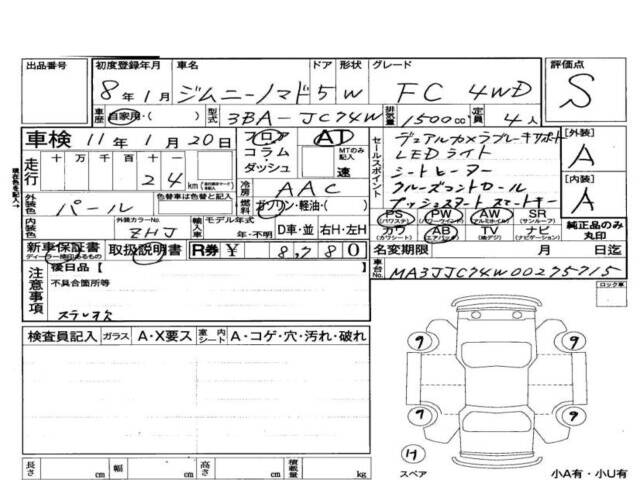 出品番号 初度登録年月 車名 ドア 形状 グレード 評価点
8年1月 ジムニーノマド 5 W FC 4WD S
車歴 自家用・( ) 型式 3BA-JC74W 排気量 1500cc 定員 4人
車検 11年1月20日 フロア コラム・ダッシュ AT MTのみ記入 速
走行 十万 千 百 十 24 km
現在色を記入→
外装色 パール 色替車は色替と記入
冷房 AAC
燃料 ガソリン・軽油・( )
内装色 外装カラーNo. ZHJ 輸入車 モデル年式 年・不明 D車・並 右H・左H
セールスポイント
デュアルカメラブレーキサポート
LEDライト
シートヒーター
クルーズコントロール
プッシュスタート スマートキー
[外装] A
[内装] A
PS (パワステ) PW (パワーウインド) AW (アルミホイル) SR (サンルーフ)
カワ (カワシート) AB (エアバック) TV (地デジ) ナビ (ナビゲーション)
純正品のみ丸印
新車保証書 取扱説明書 R券 ¥ 8,780 名変期限 月 日迄
ディーラー捺印あるもの
車台No. MA3JJC74W00275715
注意事項 後日品[ ]
不具合箇所等
ステレオ欠
ロック車
検査員記入 ガラス A・X要ス 室内シート A・コゲ・穴・汚れ・破れ
9 9
9 9
スペア
長さ cm 幅 cm 高さ cm 積載量 kg
小A有・小U有